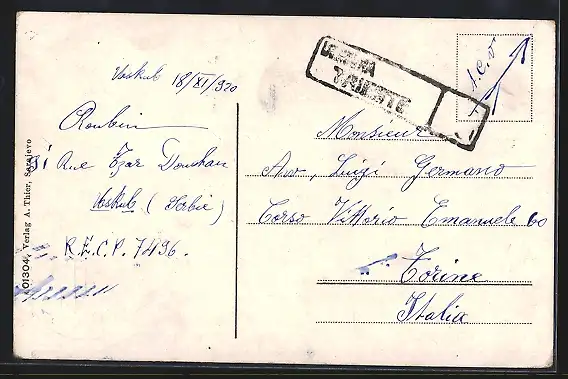 Uskub 18/XI/920
Roubin
51 Rue Tzar Douchan
Uskub (Serbie)
R.E.C.P. 7496.
01304, Verlag A. Thier, Sarajevo
TRIESTE
T.C.V
Monsieur
Avv, Luigi Germano
Corso Vittorio Emanuele 60
Torino
Italia